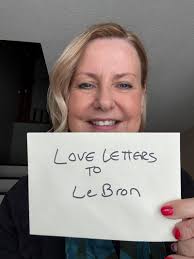 LOVE LETTERS
TO
LeBron